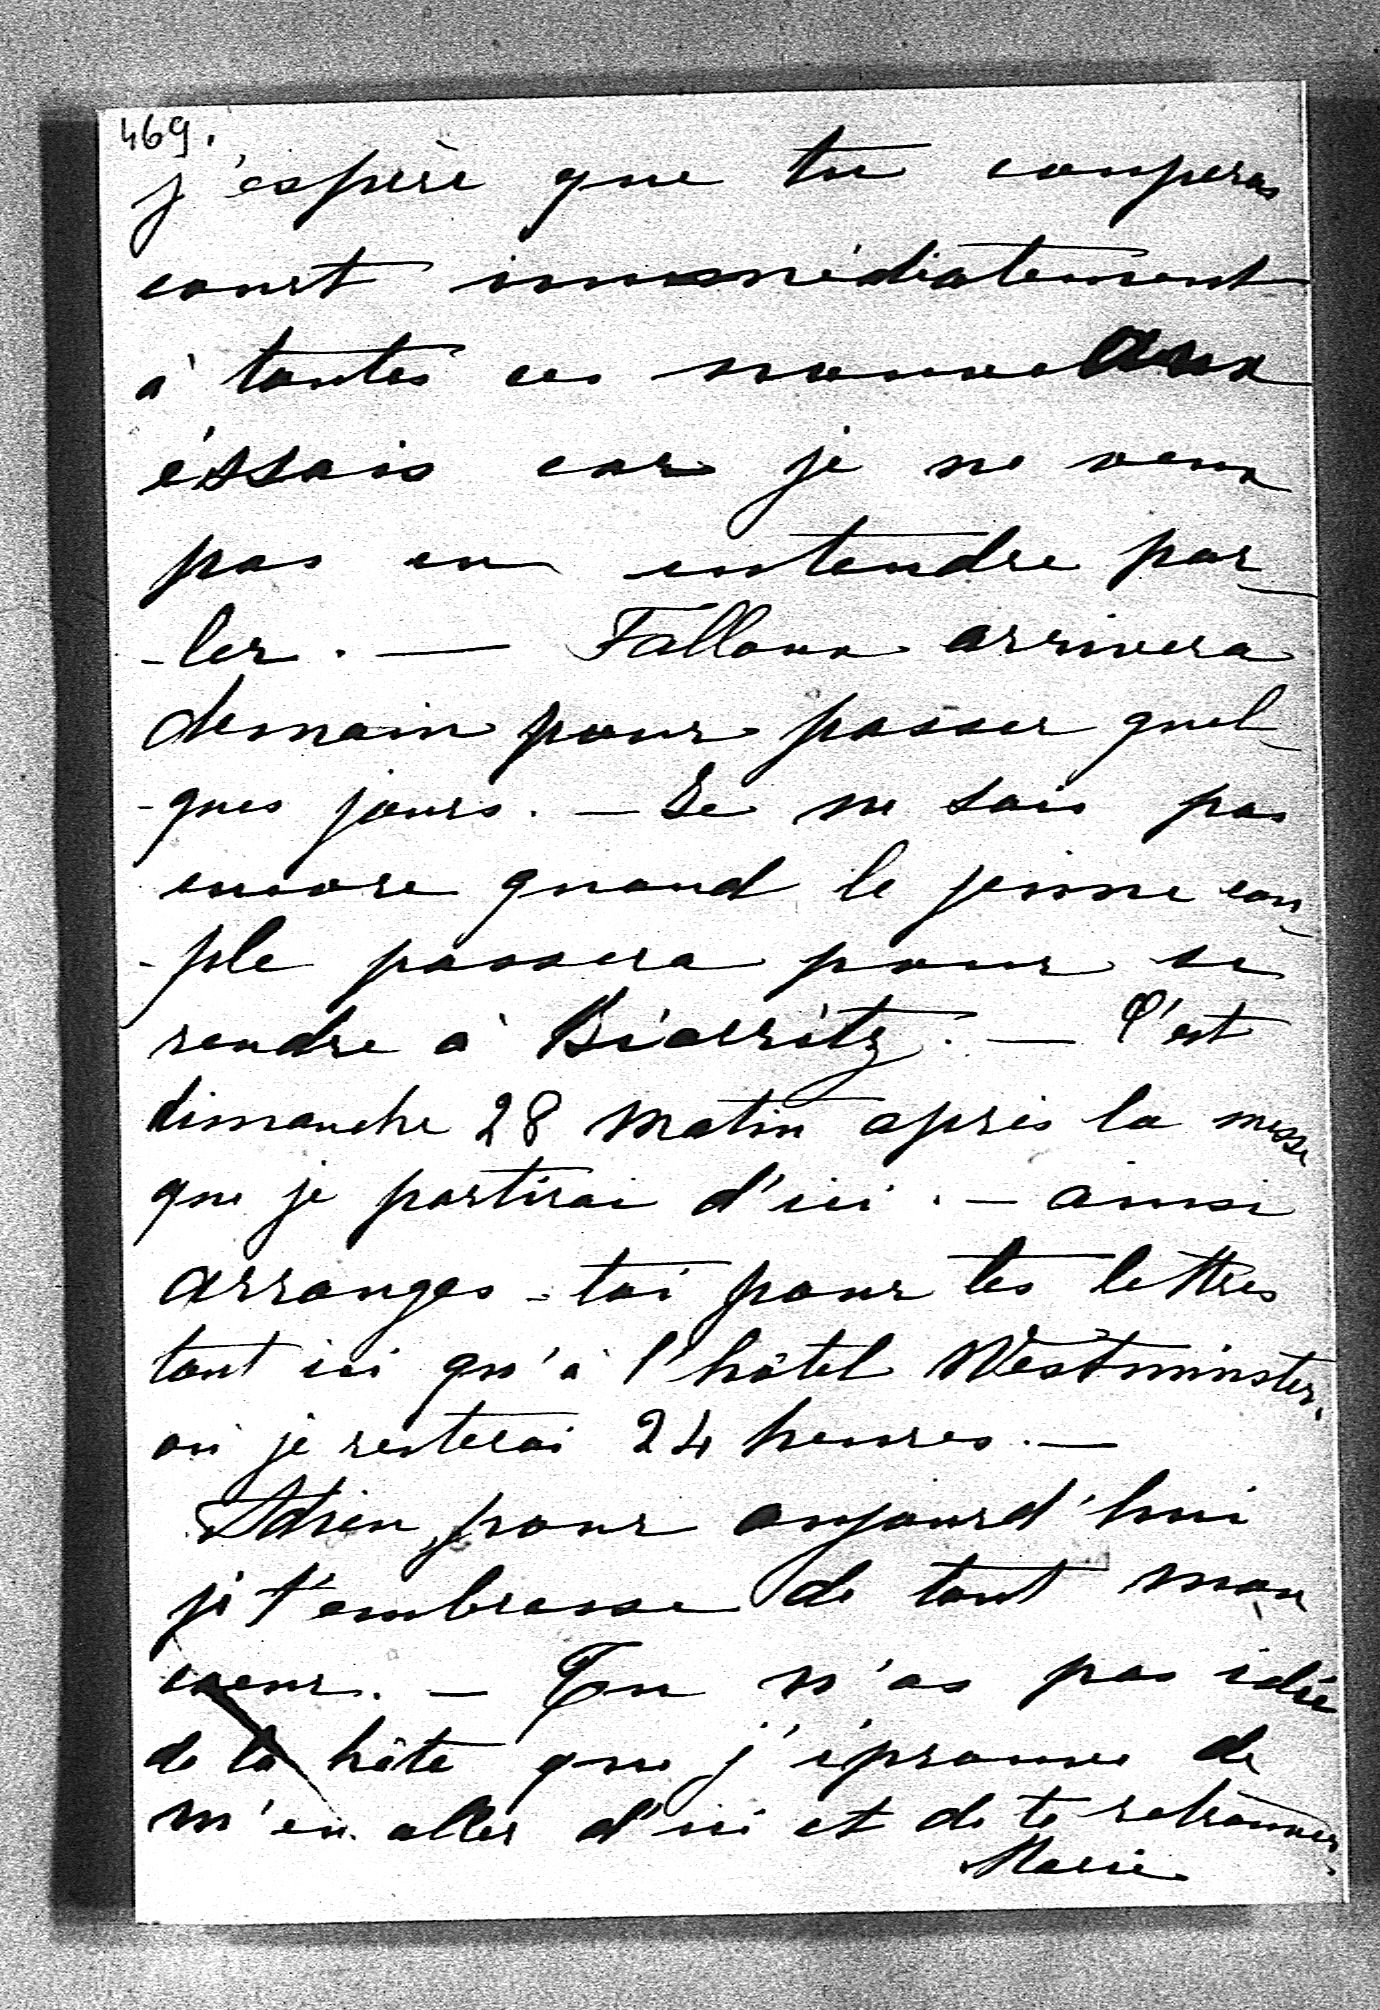 469.
j'espère que tu couperas
court immédiatement
à toutes ces nouveaux
éssais car je ne veux
pas en entendre par-
-ler. — Falloux arrivera
demain pour passer quel-
-ques jours. — Je ne sais pas
encore quand le jeune cou-
-ple passera pour se
rendre à Biarritz. — C'est
dimanche 28 matin après la messe
que je partirai d'ici. — ainsi
arranges-toi pour tes lettres
tant ici qu'à l'hôtel Westminster,
où je resterai 24 heures. —
Adieu pour aujourd'hui
je t'embrasse de tout mon
coeur. — Tu n'as pas idée
de la hâte que j'éprouve de
m'en aller d'ici et de te retrouver.
Marie